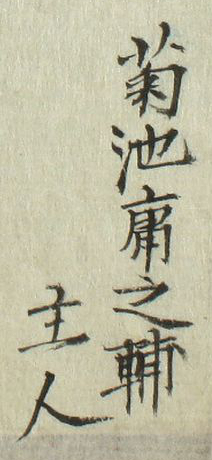 菊池庸之輔
主人